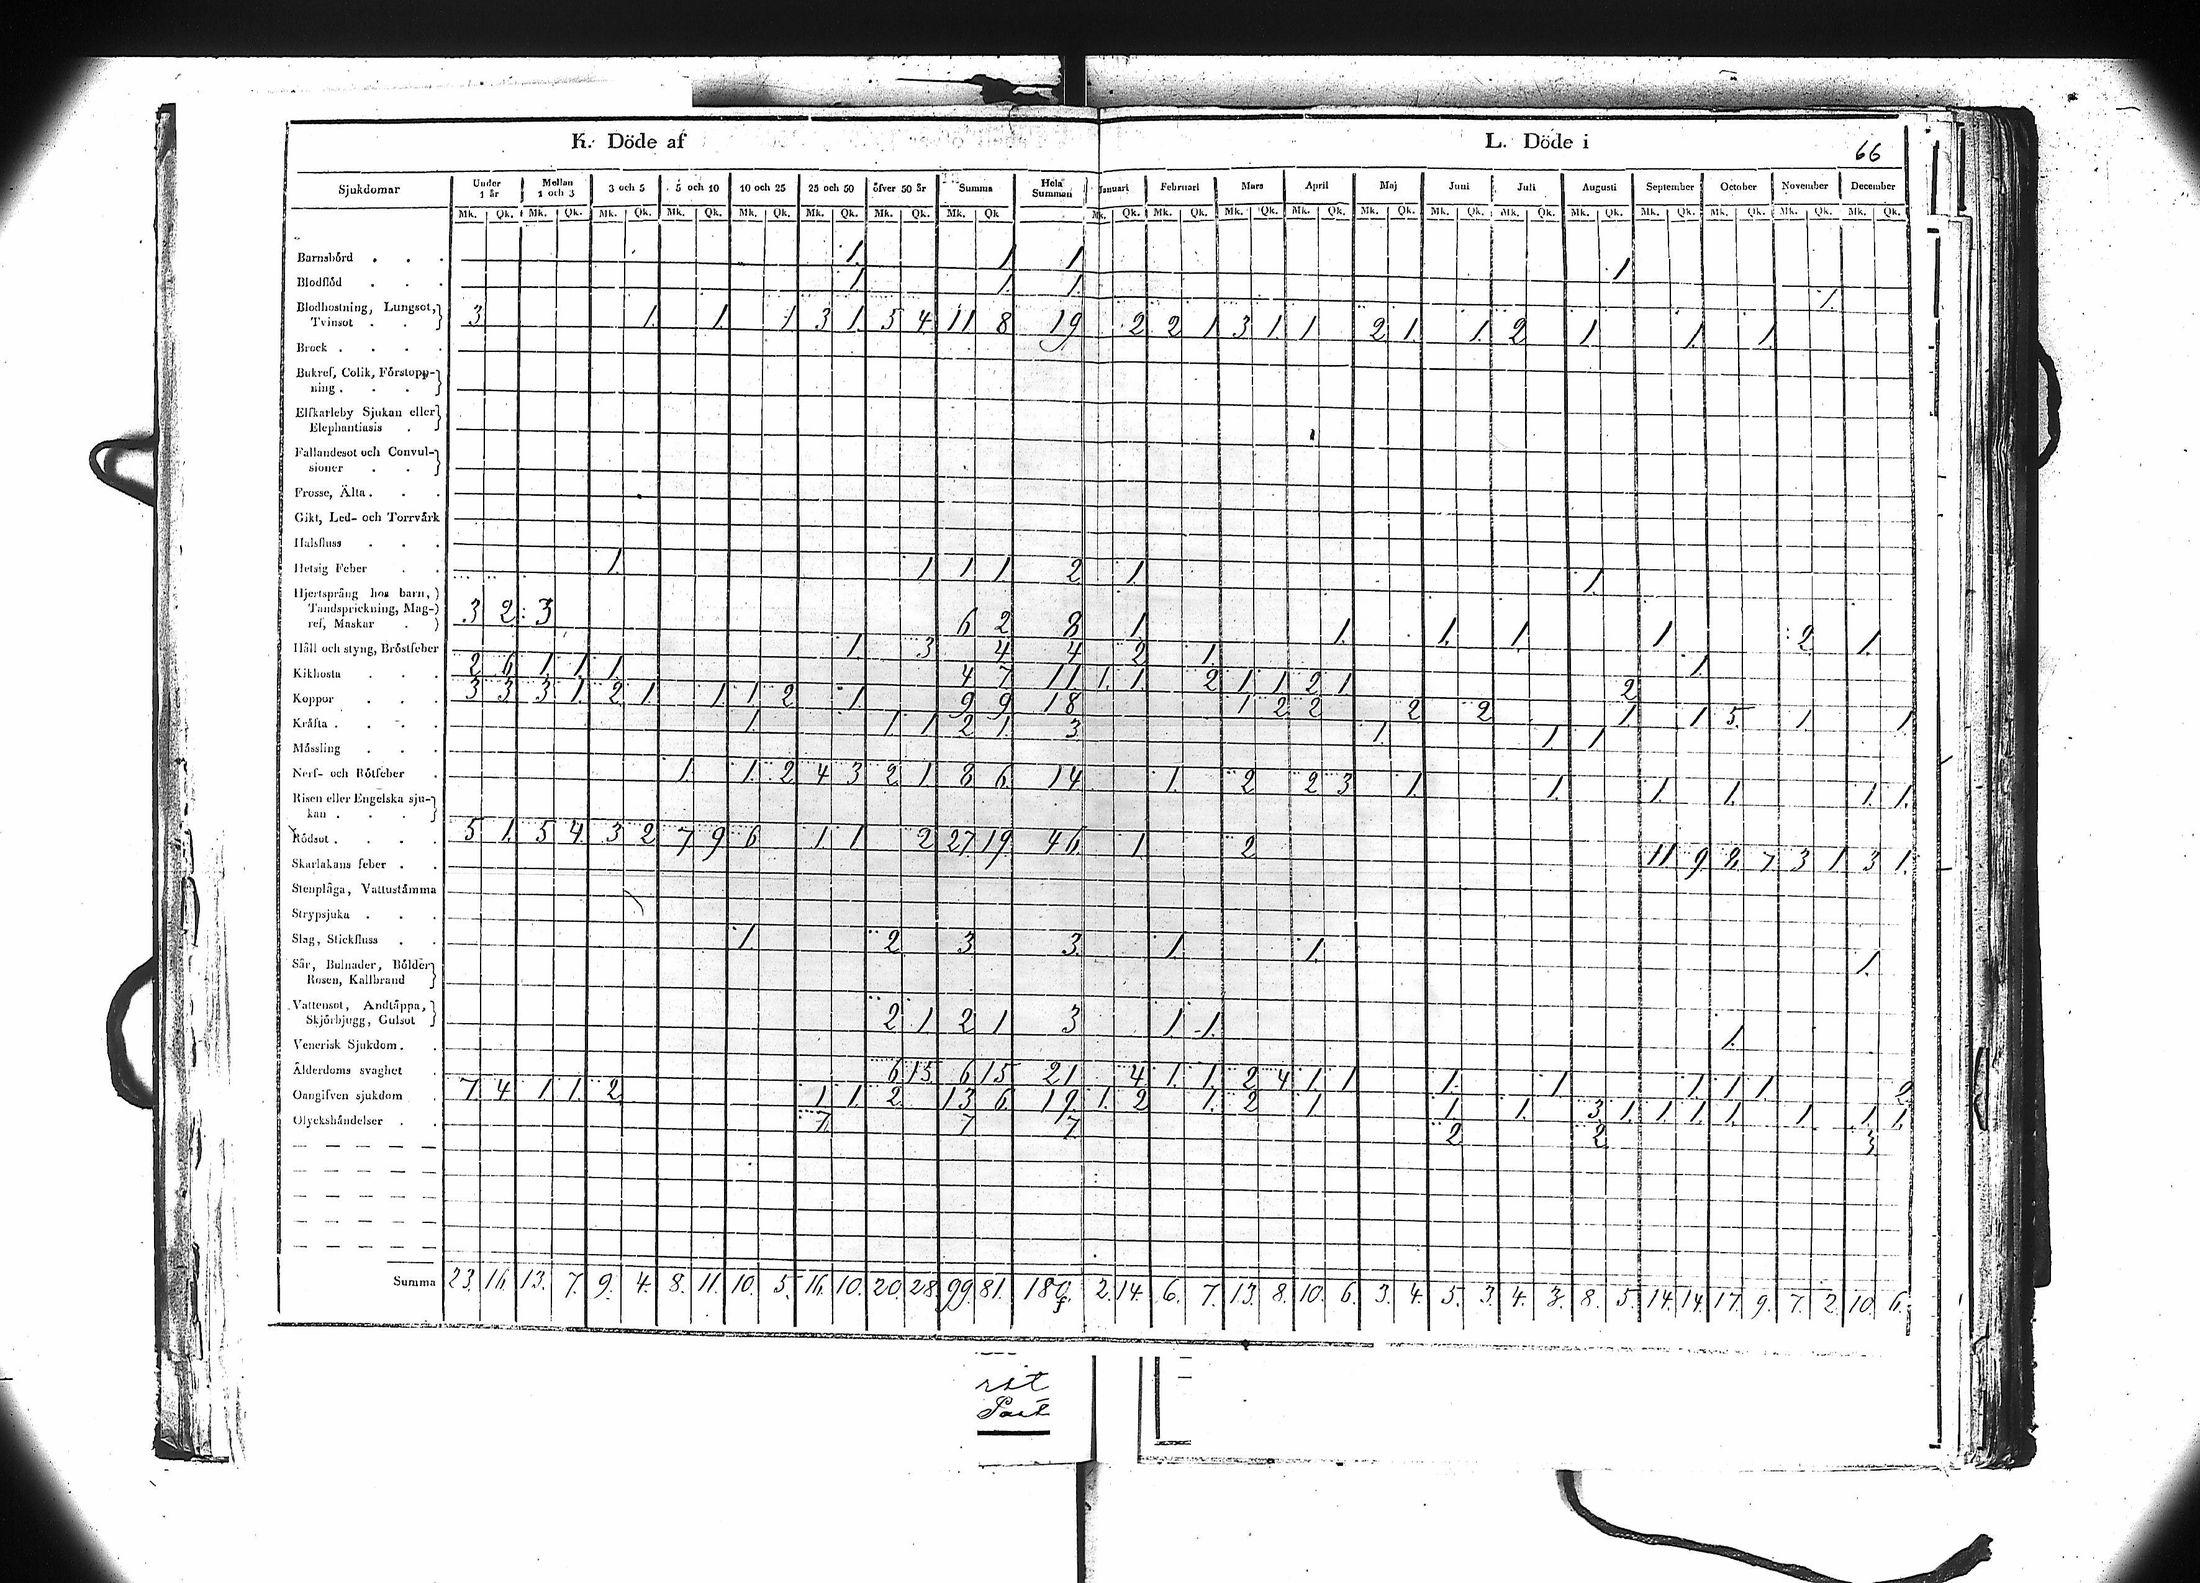 K. Döde af L. Döde i 66
Sjukdomar Under 1 år Mellan 1 och 3 3 och 5 5 och 10 10 och 25 25 och 50 öfver 50 år Summa Hela Summan Januari Februari Mars April Maj Juni Juli Augusti September October November December
Mk. Qk. Mk. Qk. Mk. Qk. Mk. Qk. Mk. Qk. Mk. Qk. Mk. Qk. Mk. Qk Mk. Qk. Mk. Qk. Mk. Qk. Mk. Qk. Mk. Qk. Mk. Qk. Mk. Qk. Mk. Qk. Mk. Qk. Mk. Qk. Mk. Qk. Mk. Qk.
Barnsbörd . . . 1. 1 1. 1
Blodflöd . . . 1 1. 1. 1.
Blodhostning, Lungsot,
Tvinsot . . 3 1. 1. 1 3 1. 5 4 11 8 19 2 2 1 3 1. 1 2 1. 1. 2 1 1. 1.
Brock . . . .
Bukref, Colik, Förstopp-
ning . . .
Elfkarleby Sjukan eller
Elephantiasis .
Fallandesot och Convul-
sioner . .
Frosse, Älta . . .
Gikt, Led- och Torrvärk
Halsfluss . . .
Hetsig Feber . . 1. 1 1 1 2 1. 1.
Hjertsprång hos barn,
Tandsprickning, Mag-
ref, Maskar . 3 2 3 6 2 8 1 1. 1. 1. 1 2 1.
Håll och styng, Bröstfeber 1. 3 4 4 2 1. 1.
Kikhosta . . . 2 6 1. 1 1 4 7 11. 1. 1. 2 1 1 2 1 2
Koppor . . . 3 3 3 1. 2 1. 1. 1 2 1 9 9 18 1 2 2 2 2 1 1 5. 1. 1.
Kräfta . . . . 1. 1 1 2 1. 3 1. 1 1
Mässling . . .
Nerf- och Rötfeber . 1. 1. 2 4 3 2 1. 8 6. 14 1. 2 2 3 1. 1. 1. 1. 1. 1.
Risen eller Engelska sju-
kan . . . .
Rödsot . . . . 5 1. 5 4. 3 2 7 9 6 1 1 2 27. 19. 46. 1 2 11 9 8. 7 3 1. 3 1.
Skarlakans feber . .
Stenplåga, Vattustämma
Strypsjuka . . .
Slag, Stickfluss . . 1. 2 3 3. 1. 1. 1.
Sår, Bulnader, Bölder
Rosen, Kallbrand
Vattensot, Andtäppa,
Skjörbjugg, Gulsot 2 1 2 1 3 1 1. 1.
Venerisk Sjukdom . .
Ålderdoms svaghet . 6 15 6 15 21 4 1. 1. 2 4 1. 1 1. 1. 1. 1. 1 2
Oangifven sjukdom . 7 4 1 1. 2 1 1. 2 13 6. 19. 1. 2 1. 2 1 1. 1. 3 1. 1. 1. 1. 1. 1. 1.
Olyckshändelser . . 7. 7 7. 2 2 3
Summa 23. 16. 13. 7. 9. 4. 8. 11. 10. 5. 16. 10. 20. 28. 99. 81. 180. 2. 14. 6. 7. 13. 8. 10. 6. 3. 4. 5. 3. 4. 3. 8. 5. 14. 14. 17. 9. 7. 2. 10. 6.